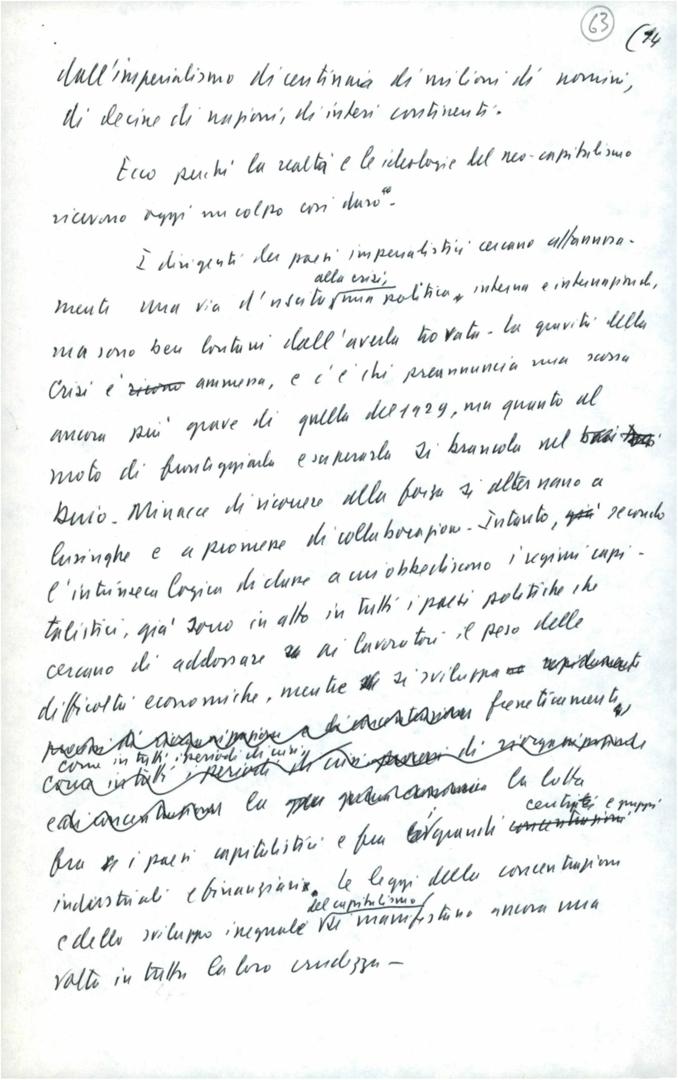 63 (14
dall'imperialismo di centinaia di milioni di uomini,
di decine di nazioni, di interi continenti.
Ecco perché la realtà e le ideologie del neo-capitalismo
ricevono oggi un colpo così duro.
I dirigenti dei paesi imperialistici cercano affannosa-
alla crisi,
mente una via d'uscita, una politica, interna e internazionale,
ma sono ben lontani dall'averla trovata. La gravità della
crisi è ammessa, e c'è chi preannuncia una scossa
ancora più grave di quella del 1929, ma quanto al
modo di fronteggiarla e superarla si brancola nel
buio. Minacce di ricorrere alla forza si alternano a
lusinghe e a promesse di collaborazione. Intanto, secondo
l'intrinseca logica di classe a cui obbediscono i regimi capi-
talistici, già sono in atto in tutti i paesi politiche che
cercano di addossare ai lavoratori il peso delle
difficoltà economiche, mentre si sviluppa rapidamente
processi di riorganizzazione e di concentrazione freneticamente,
come in tutti i periodi di crisi,
come in tutti i periodi di crisi processi di riorganizzazione
e di concentrazione la la lotta
centri e gruppi
fra i paesi capitalistici e fra grandi concentrazioni
industriali e finanziari. Le leggi della concentrazione
del capitalismo
e dello sviluppo ineguale si manifestano ancora una
volta in tutta la loro crudezza.